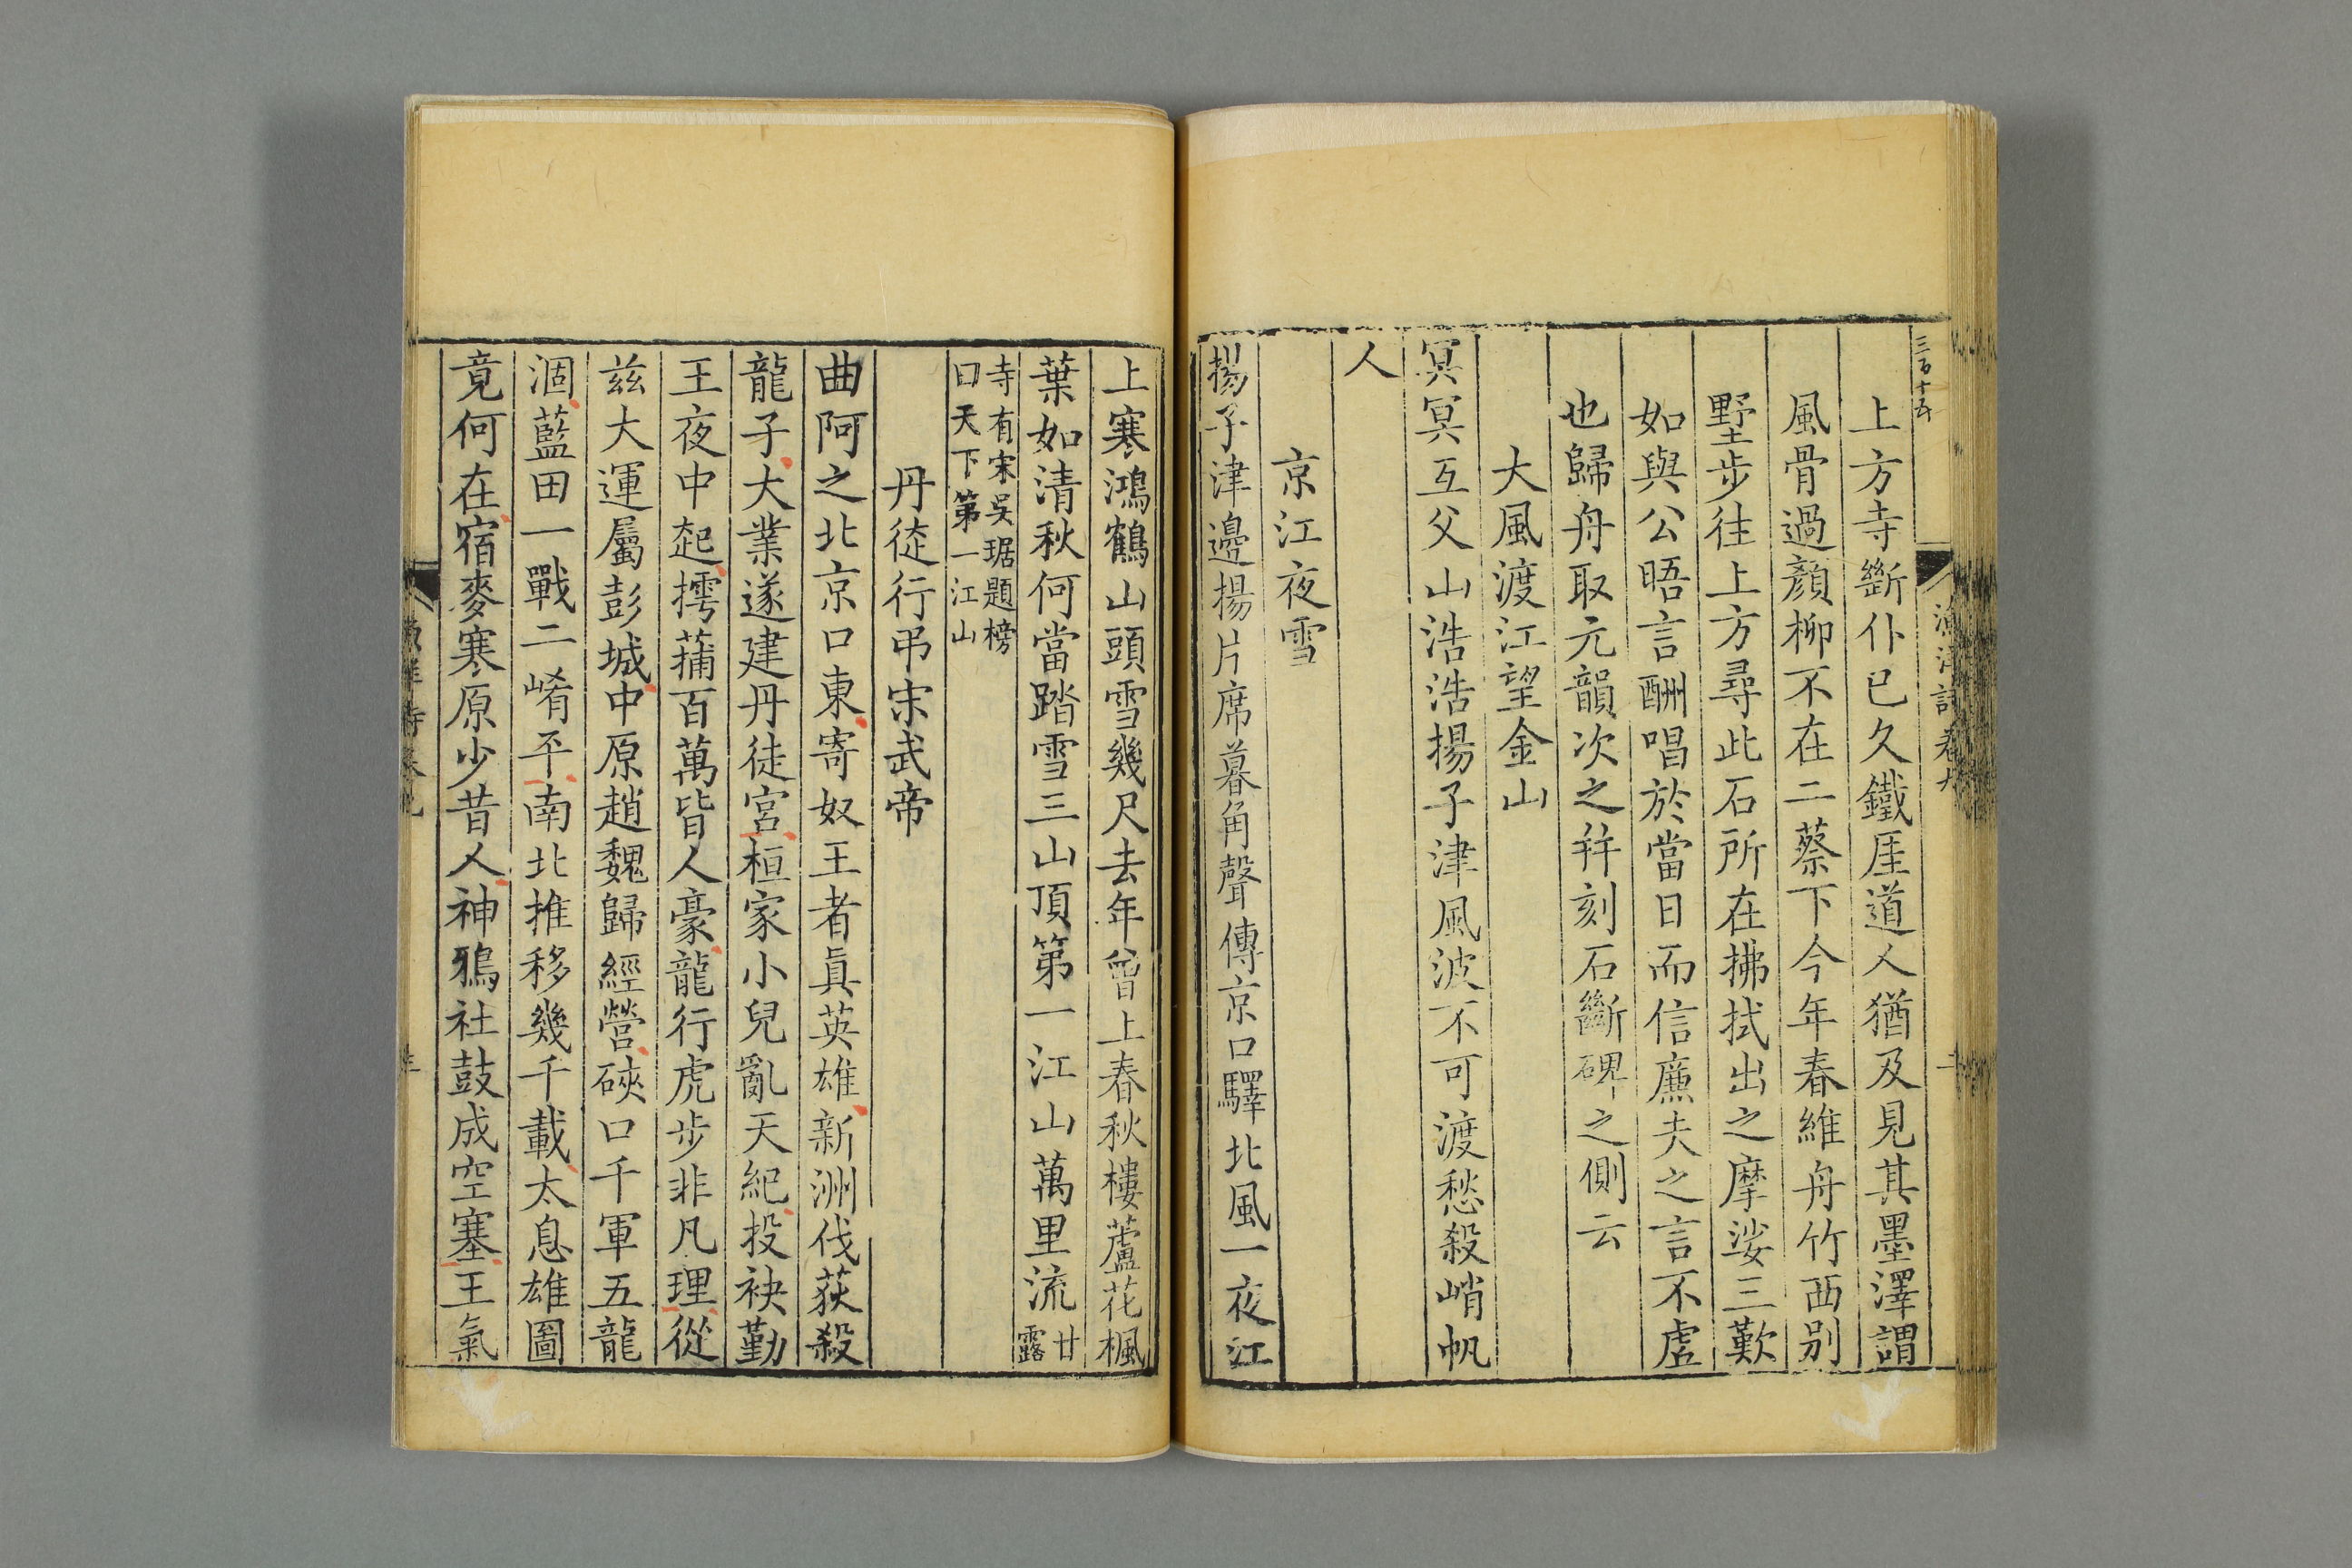 三百十五
上方寺斷仆已久鐵厓道人猶及見其墨澤謂
風骨過顏柳不在二蔡下今年春維舟竹西別
墅步往上方尋此石所在拂拭出之摩挲三歎
如與公晤言酬唱於當日而信廉夫之言不虛
也歸舟取元韻次之幷刻石斷碑之側云
大風渡江望金山
冥冥互父山浩浩揚子津風波不可渡愁殺峭帆
人
京江夜雪
揚子津邊揚片席暮角聲傳京口驛北風一夜江
上寒鴻鶴山頭雪幾尺去年曾上春秋樓蘆花楓
葉如清秋何當踏雪三山頂第一江山萬里流甘露
寺有宋吳琚題榜
曰天下第一江山
丹徒行弔宋武帝
曲阿之北京口東寄奴王者眞英雄新洲伐荻殺
龍子大業遂建丹徒宮桓家小兒亂天紀投袂勤
王夜中起摴蒱百萬皆人豪龍行虎步非凡理從
玆大運屬彭城中原趙魏歸經營硤口千軍五龍
涸藍田一戰二崤平南北推移幾千載太息雄圖
竟何在宿麥寒原少昔人神鴉社鼓成空塞王氣